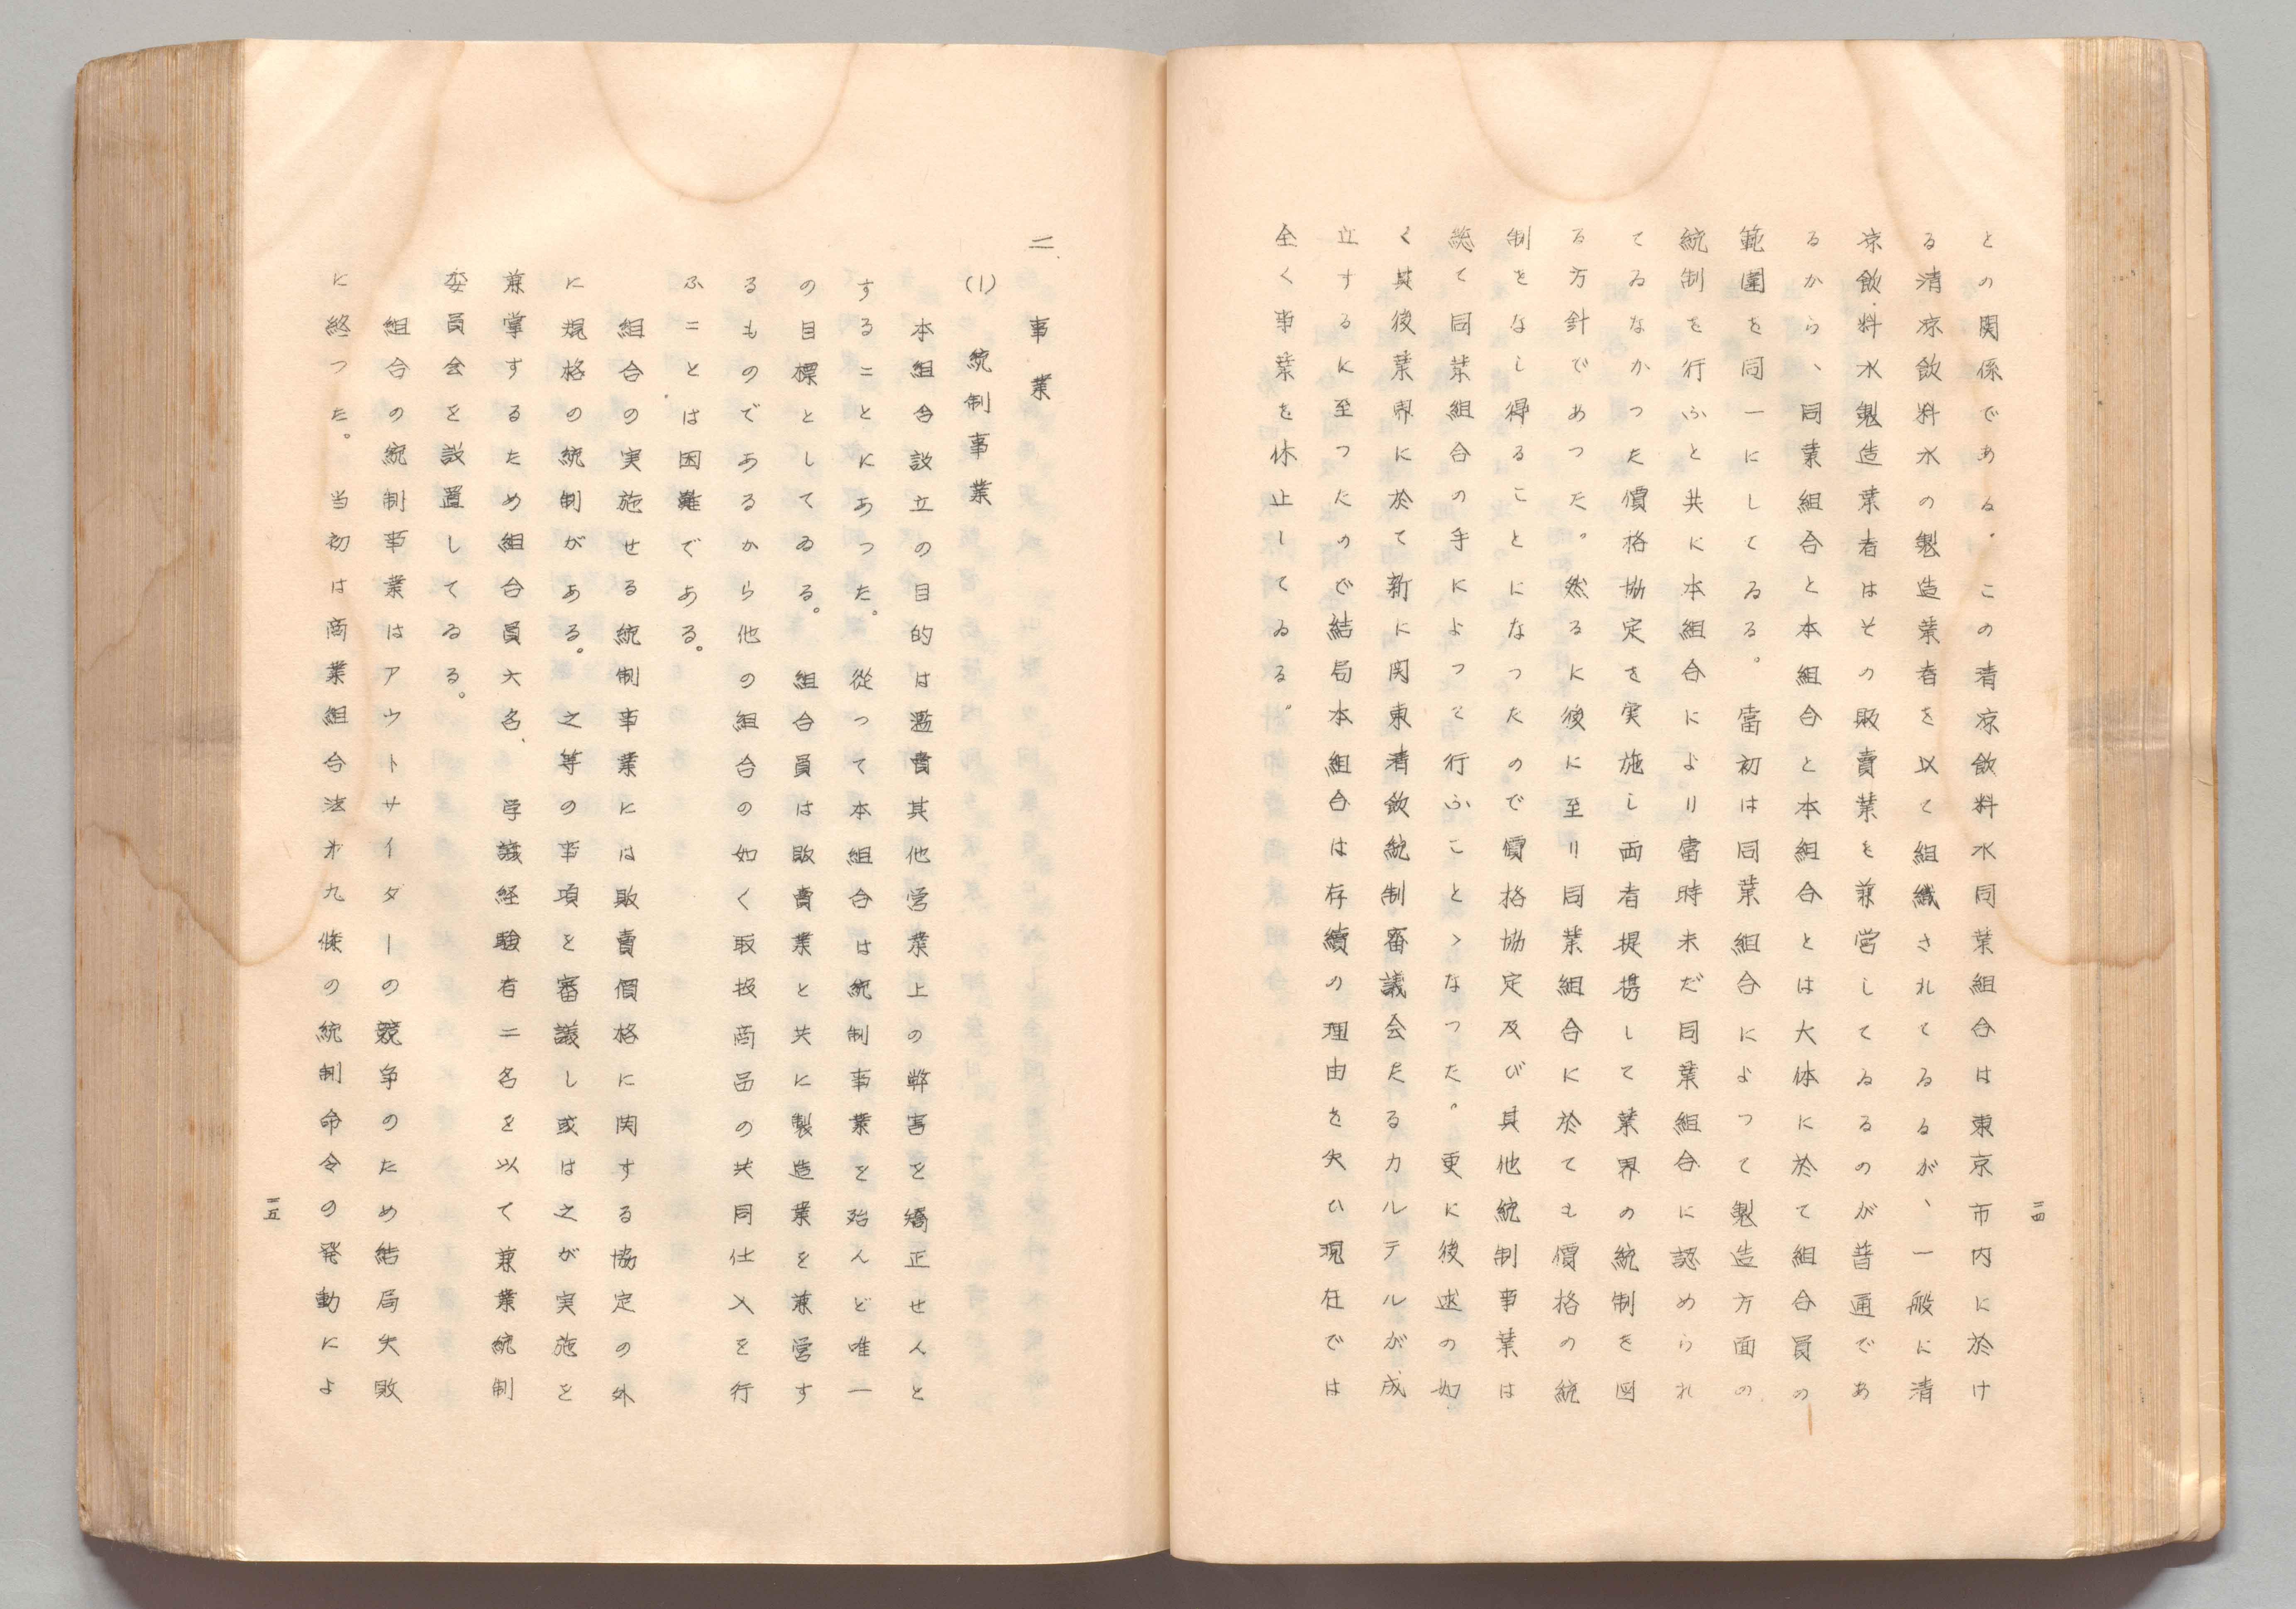 三四
との関係である。この清凉飲料水同業組合は東京市内に於け
る清凉飲料水の製造業者を以て組織されてゐるが、一般に清
凉飲料水製造業者はその販賣業を兼営してゐるのが普通であ
るから、同業組合と本組合と本組合とは大体に於て組合員の
範圍を同一にしてゐる。當初は同業組合によつて製造方面の
統制を行ふと共に本組合により當時未だ同業組合に認められ
てゐなかつた價格協定を実施し両者提携して業界の統制を図
る方針であつた。然るに後に至り同業組合に於ても價格の統
制をなし得ることになつたので價格協定及び其他統制事業は
総て同業組合の手によつて行ふことゝなつた。更に後述の如
く其後業界に於て新に関東清飲統制審議会たるカルテルが成
立するに至つたので結局本組合は存續の理由を失ひ現在では
全く事業を休止してゐる。
二、事業
(1) 統制事業
本組合設立の目的は濫賣其他営業上の弊害を矯正せんと
することにあつた。從つて本組合は統制事業を殆んど唯一
の目標としてゐる。組合員は販賣業と共に製造業を兼営す
るものであるから他の組合の如く取扱商品の共同仕入を行
ふことは困難である。
組合の実施せる統制事業には販賣價格に関する協定の外
に規格の統制がある。之等の事項を審議し或は之が実施を
兼掌するため組合員六名、学識経験者二名を以て兼業統制
委員会を設置してゐる。
組合の統制事業はアウトサイダーの競争のため結局失敗
に終つた。当初は商業組合法才九條の統制命令の発動によ
三五